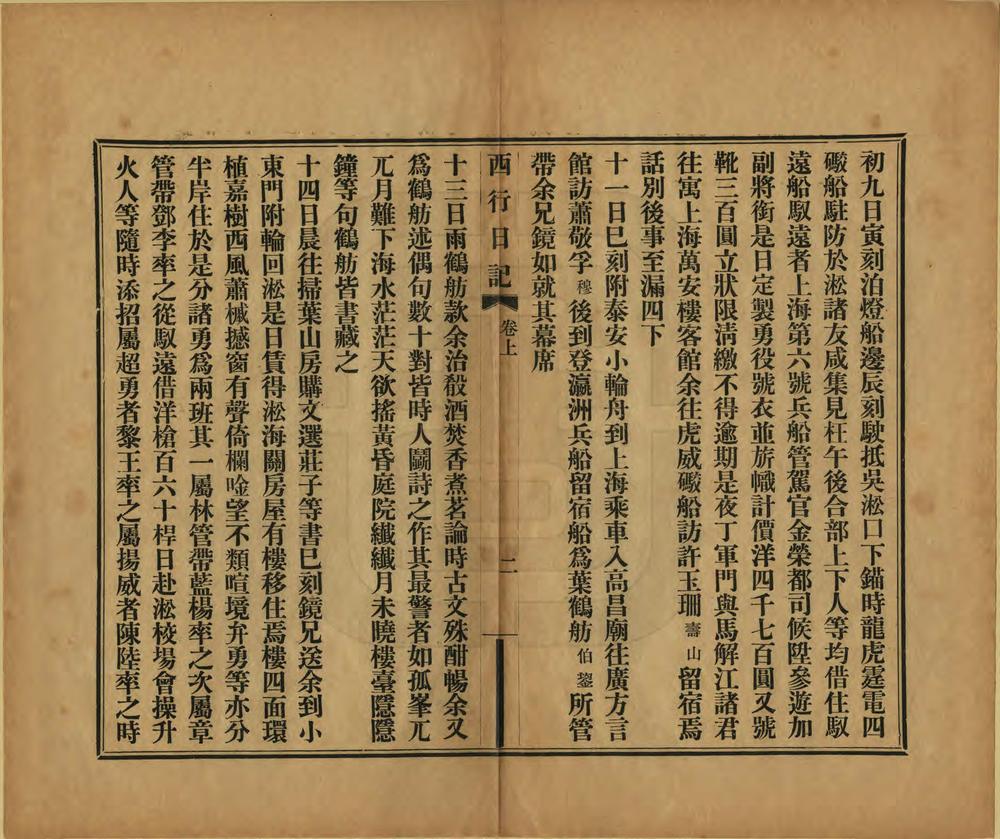 初九日寅刻泊燈船邊辰刻駛抵吳淞口下錨時龍虎霆電四
礮船駐防於淞諸友咸集見枉午後合部上下人等均借住馭
遠船馭遠者上海第六號兵船管駕官金榮都司候陞參遊加
副將銜是日定製勇役號衣並旂幟計價洋四千七百圓又號
靴三百圓立狀限淸繳不得逾期是夜丁軍門與馬解江諸君
往寓上海萬安樓客館余往虎威礮船訪許玉珊壽山留宿焉
話別後事至漏四下
十一日巳刻附泰安小輪舟到上海乘車入高昌廟往廣方言
館訪蕭敬孚穆後到登瀛洲兵船留宿船爲葉鶴舫伯鋆所管
帶余兄鏡如就其幕席
西行日記 卷上 二
十三日雨鶴舫款余治殽酒焚香煮茗論時古文殊酣暢余又
爲鶴舫述偶句數十對皆時人鬭詩之作其最警者如孤峯兀
兀月難下海水茫茫天欲搖黃昏庭院纖纖月未曉樓臺隱隱
鐘等句鶴舫皆書藏之
十四日晨往掃葉山房購文選莊子等書巳刻鏡兄送余到小
東門附輪回淞是日賃得淞海關房屋有樓移住焉樓四面環
植嘉樹西風蕭槭撼窗有聲倚欄唫望不類喧境弁勇等亦分
半岸住於是分諸勇爲兩班其一屬林管帶藍楊率之次屬章
管帶鄧李率之從馭遠借洋槍百六十桿日赴淞校場會操升
火人等隨時添招屬超勇者黎王率之屬揚威者陳陸率之時